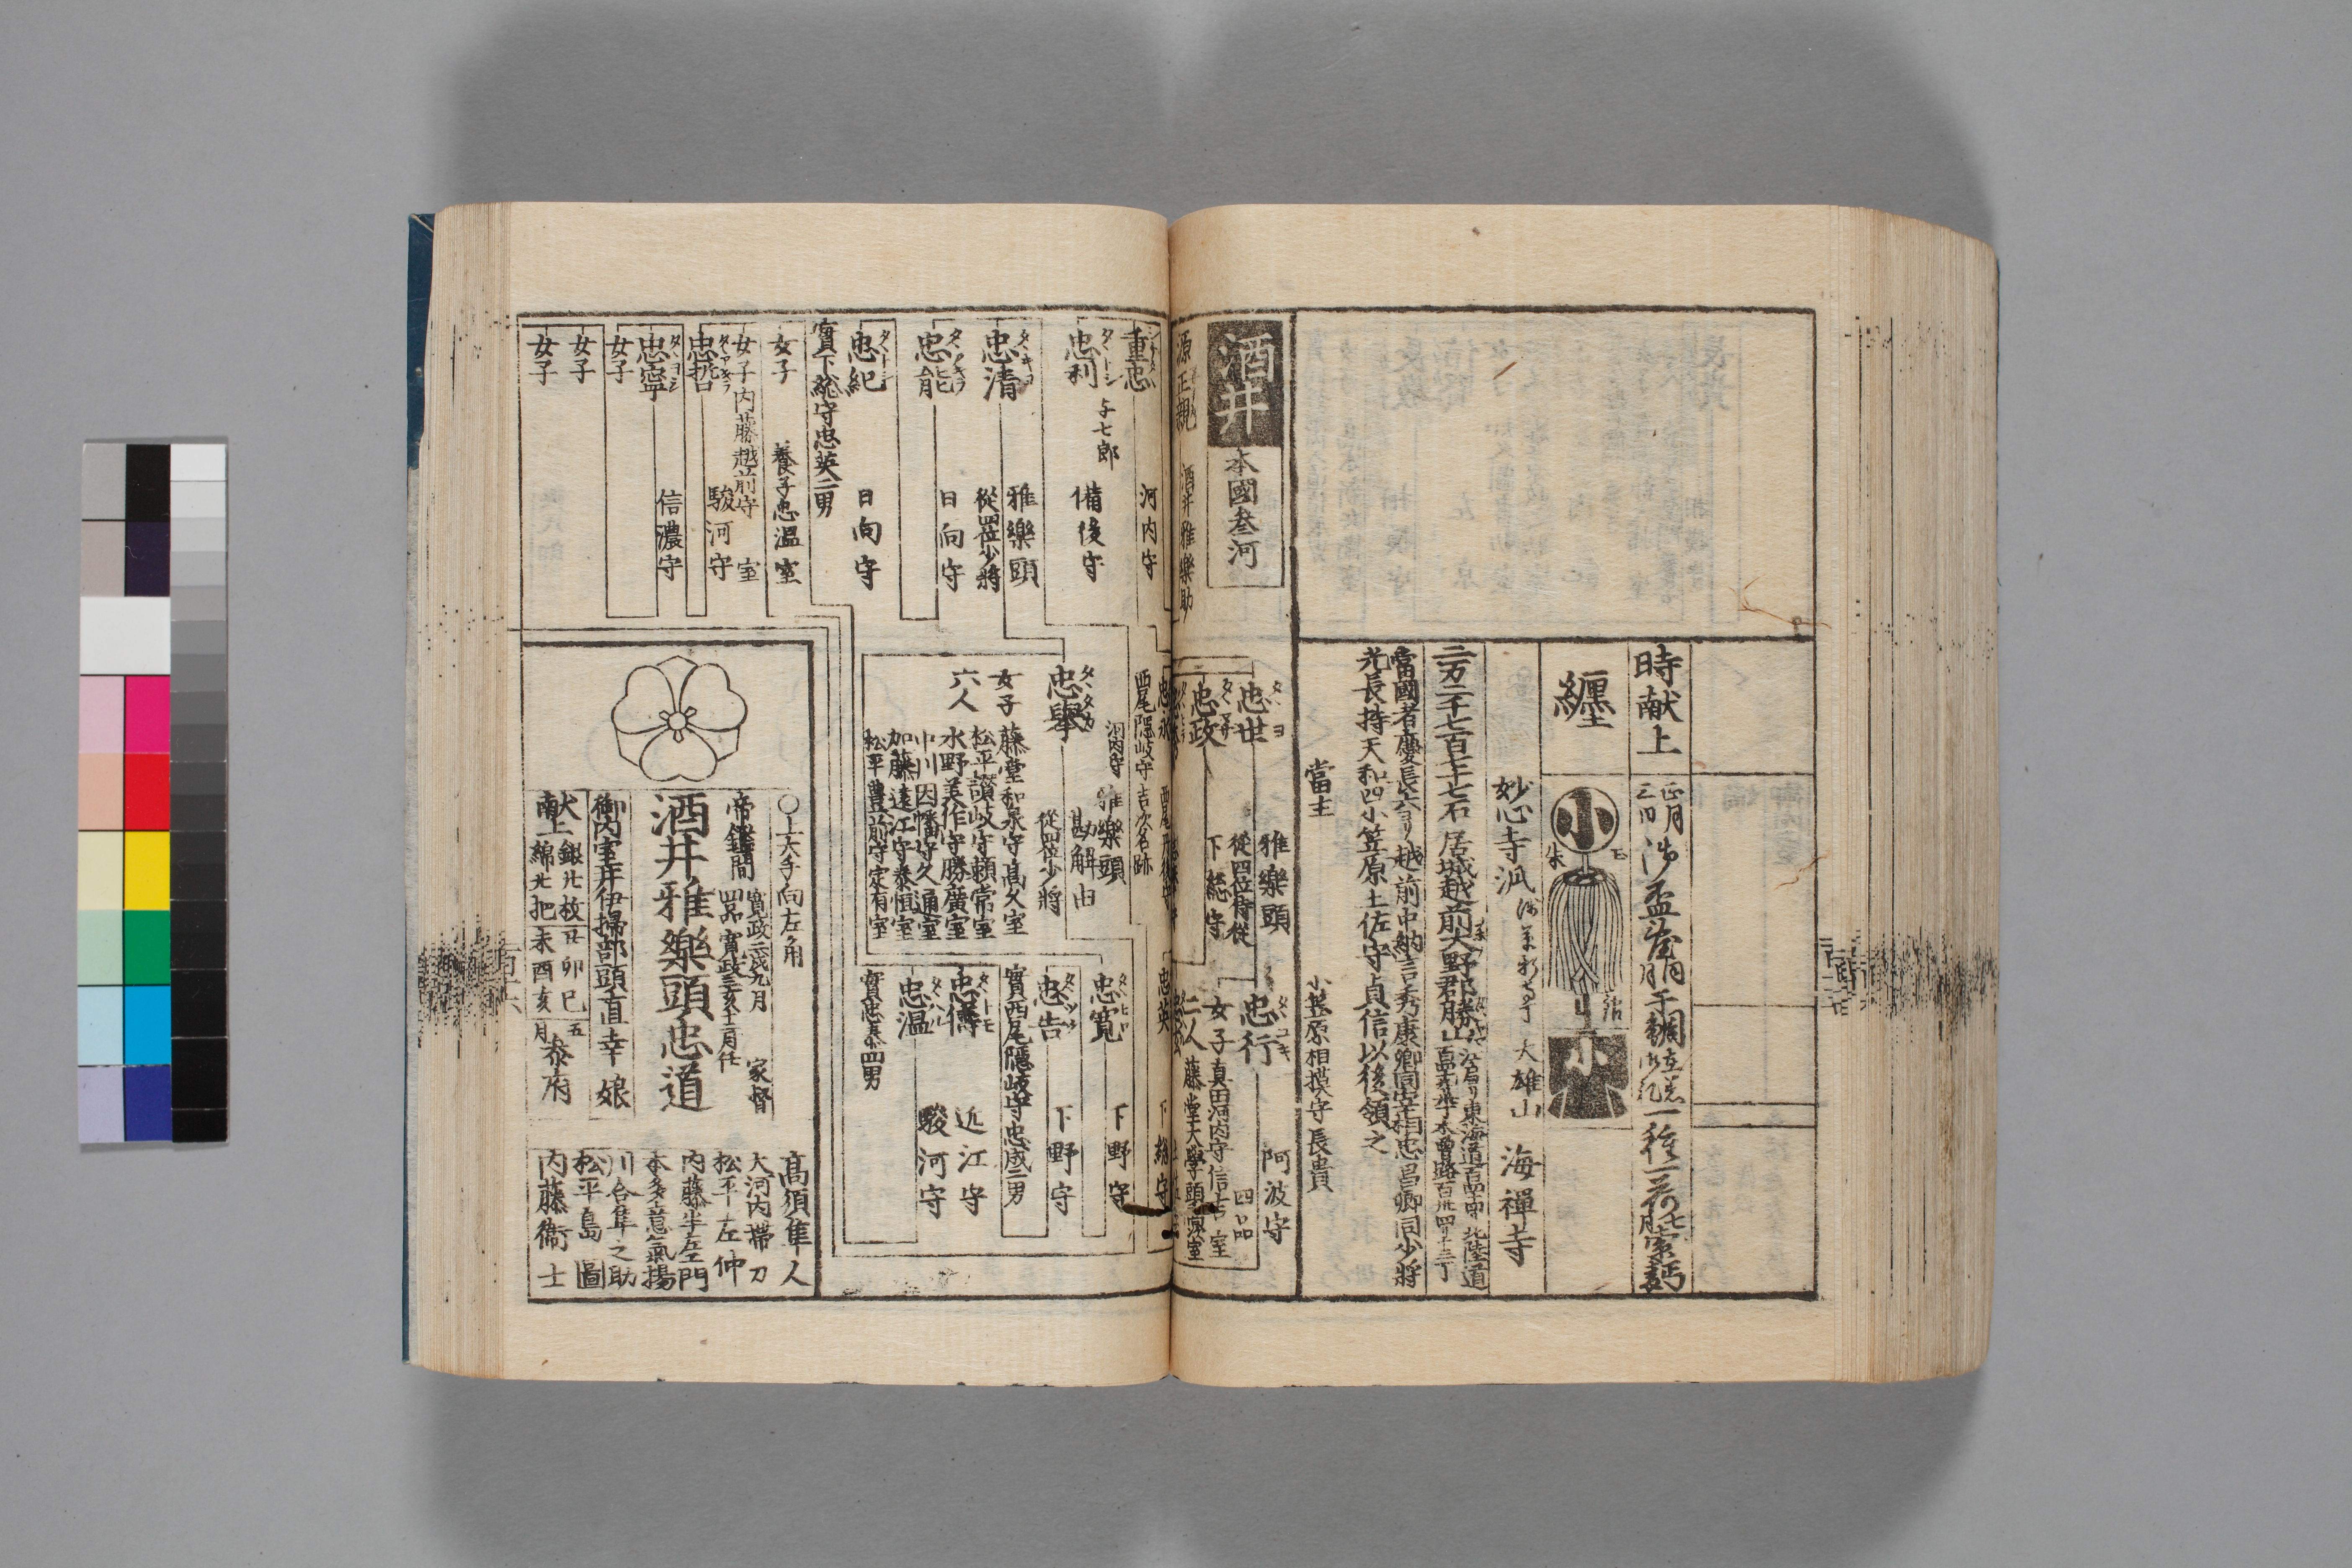 時献上
正月
三日
御盃臺
一種一荷
纏
小
朱
小
妙心寺派
大雄山
海禪寺
二万二千七百七十七石
居城越前大野郡勝山
當國者慶長六ヨリ越前中納言秀康卿同宰相忠昌卿同少将
光長持天和四小笠原土佐守貞信以後領之
當主
小笠原相摸守長貴
酒井
本國叄河
源正親
酒井雅樂助
忠世
雅樂頭
從四位侍從
忠政
下總守
忠行
阿波守
四品
女子
二人
真田河内守信吉室
藤堂大學頭高次室
重忠
河内守
忠利
与七郎
備後守
忠清
雅樂頭
從四位少將
忠能
日向守
忠紀
日向守
實下総守忠英二男
女子
養子忠温室
女子
内藤越前守
室
忠哲
駿河守
女子
忠寧
信濃守
女子
女子
西尾隱岐守吉次名跡
忠擧
河内守
雅樂頭
勘解由
從四位少將
女子
六人
藤堂和泉守高久室
松平讃岐守頼常室
水野美作守勝廣室
中川因幡守久通室
加藤遠江守泰恒室
松平豊前守家有室
忠英
下總守
忠寛
下野守
忠告
下野守
實西尾隱岐守忠成二男
忠儔
近江守
忠温
駿河守
實忠恭四男
○上大手向左角
帝鑑間
寛政二戌九月
家督
四品
寛政三亥十二月任
酒井雅樂頭忠道
御内室井伊掃部頭直幸娘
献上
銀廿枚
綿廿把
丑卯巳
未酉亥
五
月
参府
髙須隼人
大河内帯刀
松平左仲
内藤半左エ門
本多意氣揚
川合隼之助
松平島圖
内藤衞士